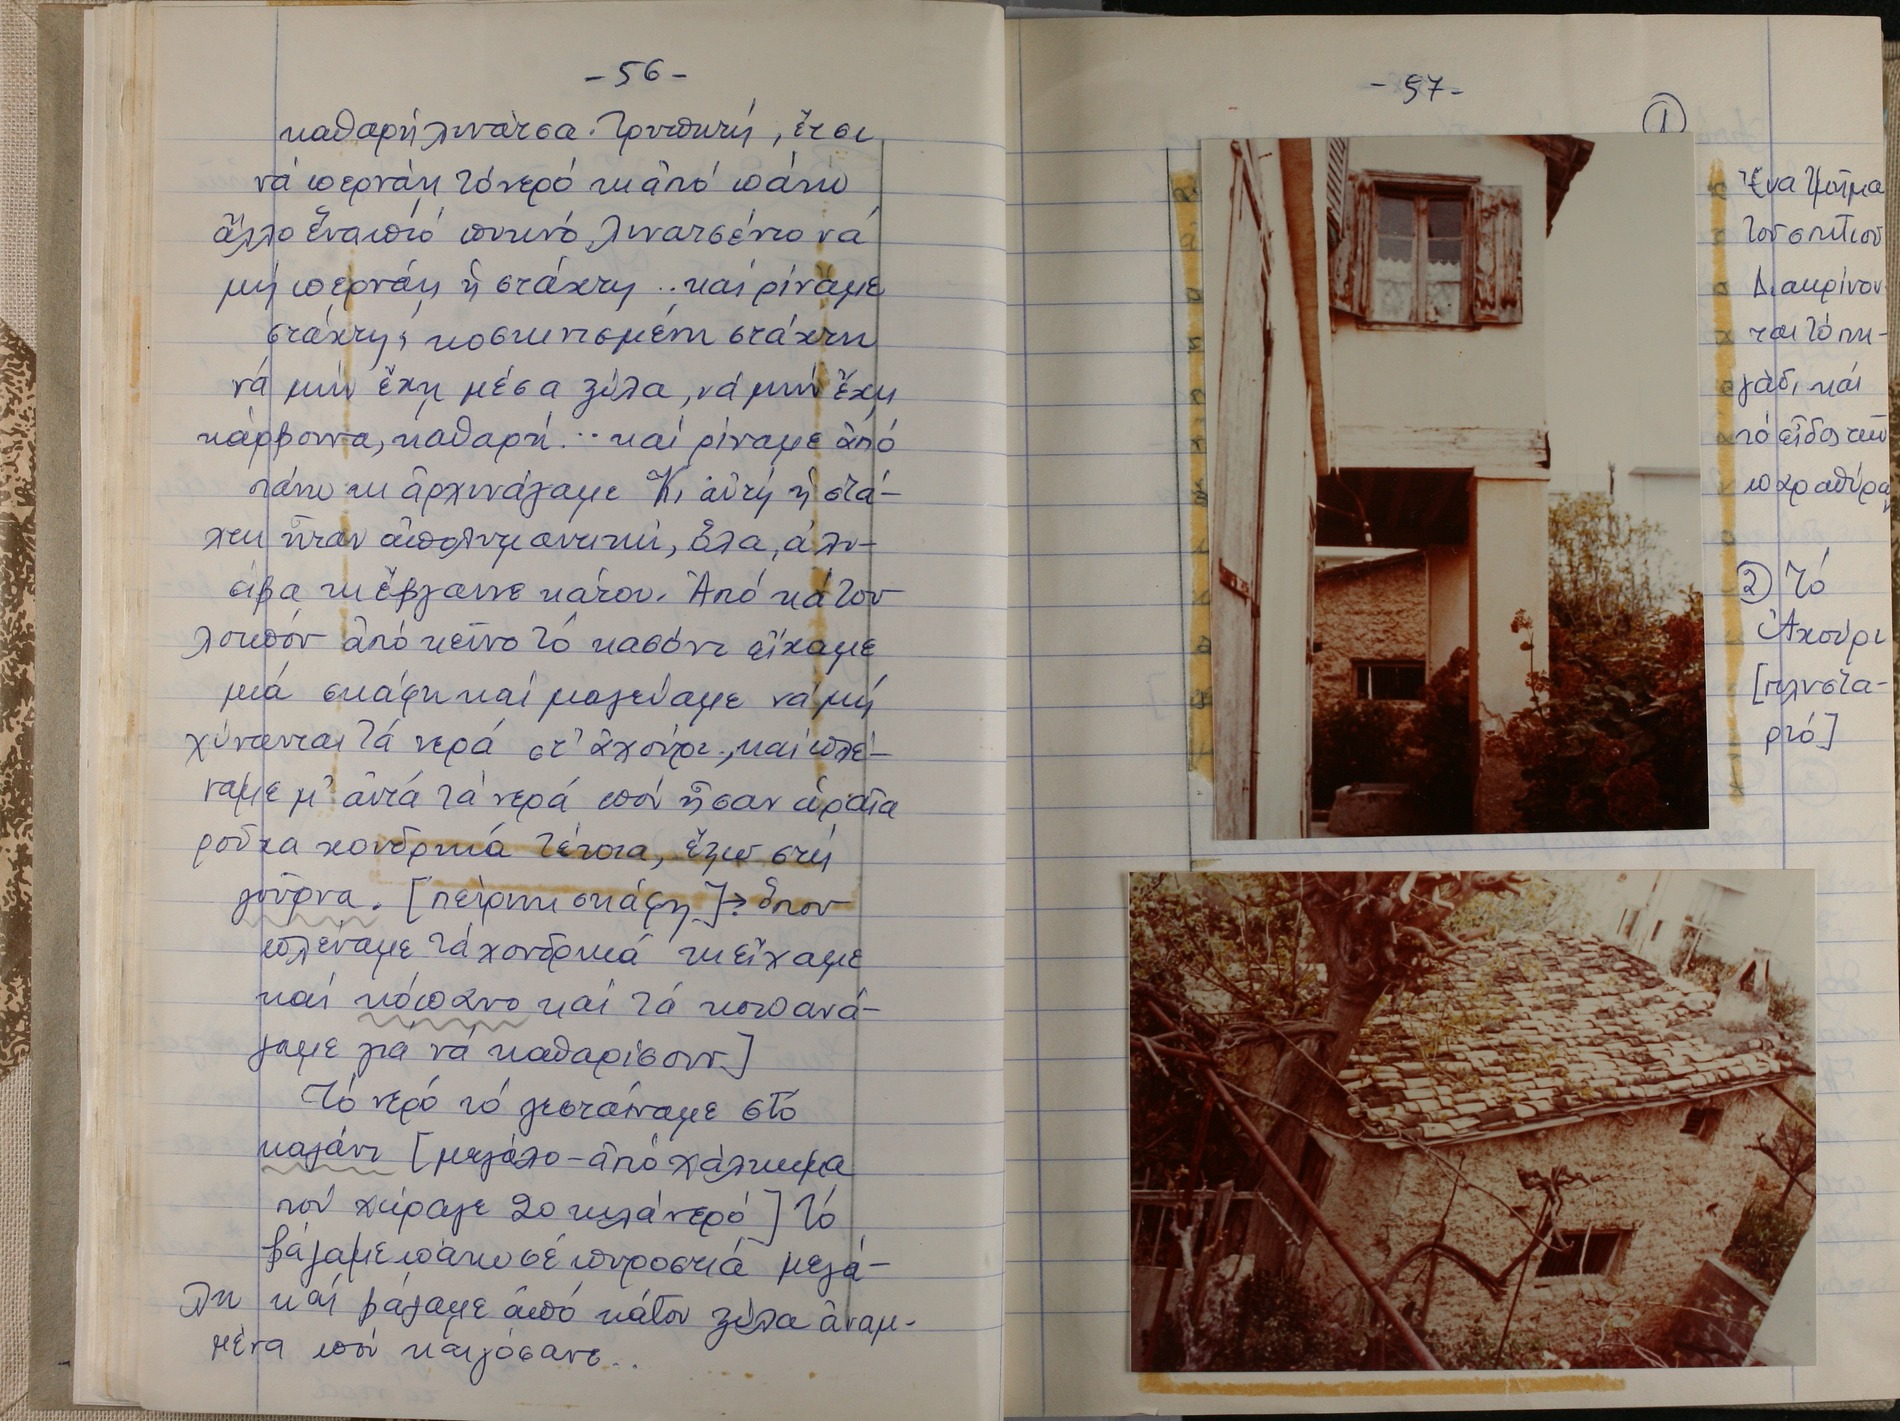 - 56 -
καθαρή λινάτσα. Τρυπητή, έτσι
νά περνάη τό νερό κι ἀπό πάνω
ἄλλο ἕνα πιό πυκνό λινατσένιο νά
μή περνάη ἡ στάχτη .. καί ρίναμε
στάχτη, κοσκινισμένη στάχτη
νά μήν ἔχη μέσα ξύλα, νά μήν ἔχη
κάρβουνα, καθαρή... καί ρίναμε ἀπό
πάνω κι ἀρχινάγαμε Κι αὐτή ἡ στά-
χτη ἦταν ἀπολυμαντική, ὅλα, ἀλυ-
σίβα κι ἔβγαινε κάτου. Ἀπό κάτου
λοιπόν ἀπό κεῖνο τό κασόνι εἴχαμε
μιά σκάφη καί μαζεύαμε νά μή
χύνωνται τά νερά στ' ἀχούρι, καί πλέ-
ναμε μ' αὐτά τά νερά πού ἦσαν ὡραῖα
ροῦχα χονδρικά τέτοια, ἔξω στή
γούρνα. [πέτρινη σκάφη]→ ὅπου
πλέναμε τά χονδρικά κι εἴχαμε
καί κόπανο καί τά κοπανά-
γαμε γιά νά καθαρίσουν]
Τό νερό τό ζεσταίναμε στό
καζάνι [μεγάλο - ἀπό χάλκωμα
πού χώραγε 20 κιλά νερό] Τό
βάζαμε πάνω σέ πυροστιά μεγά-
λη καί βάζαμε ἀπό κάτου ξύλα ἀναμ-
μένα πού καιγόσανε..
- 57 -
①
Ἕνα τμῆμα
τοῦ σπιτιοῦ
Διακρίνον
ται τό πη-
γάδι καί
τό εἶδος τῶν
παραθύρων
② Τό
Ἀχούρι
[πλυστα-
ριό]